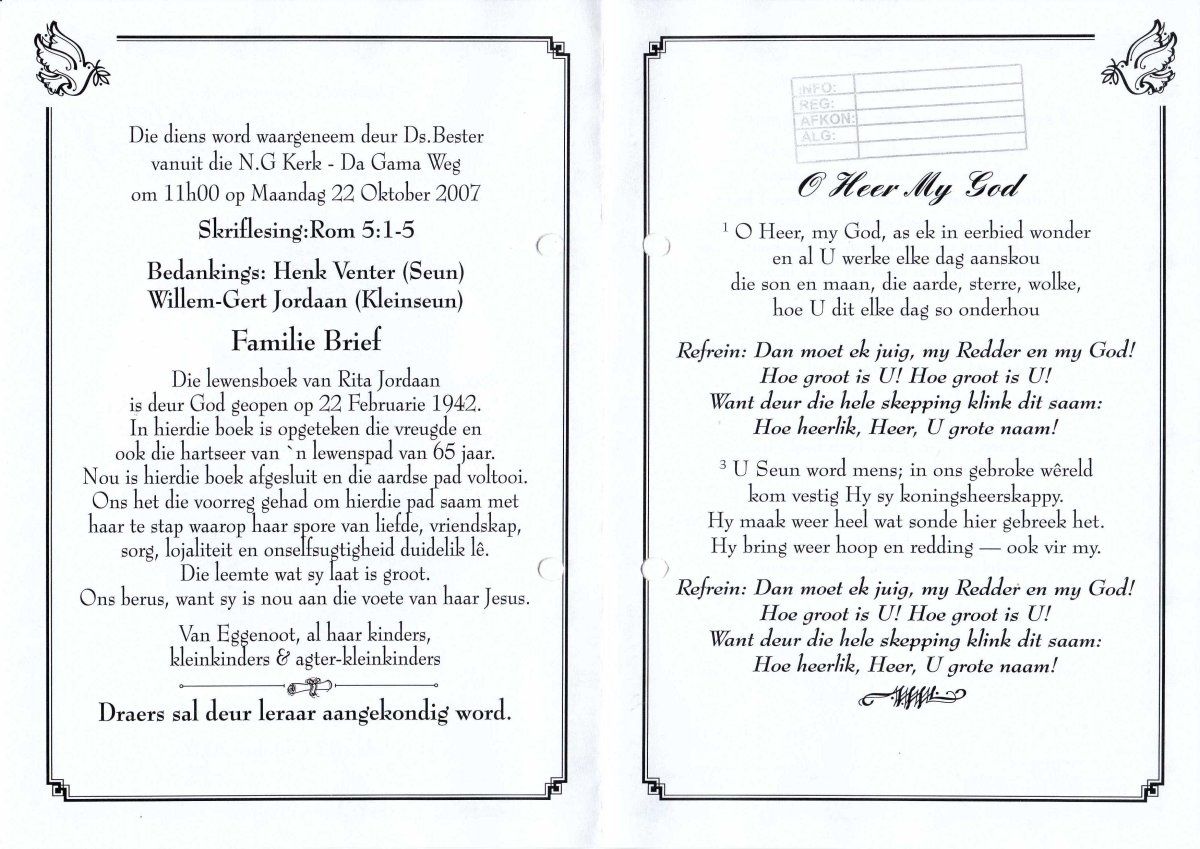 Die diens word waargeneem deur Ds.Bester
vanuit die N.G Kerk - Da Gama Weg
om 11h00 op Maandag 22 Oktober 2007
Skriflesing:Rom 5:1-5
Bedankings: Henk Venter (Seun)
Willem-Gert Jordaan (Kleinseun)
Familie Brief
Die lewensboek van Rita Jordaan
is deur God geopen op 22 Februarie 1942.
In hierdie boek is opgeteken die vreugde en
ook die hartseer van `n lewenspad van 65 jaar.
Nou is hierdie boek afgesluit en die aardse pad voltooi.
Ons het die voorreg gehad om hierdie pad saam met
haar te stap waarop haar spore van liefde, vriendskap,
sorg, lojaliteit en onselfsugtigheid duidelik lê.
Die leemte wat sy laat is groot.
Ons berus, want sy is nou aan die voete van haar Jesus.
Van Eggenoot, al haar kinders,
kleinkinders & agter-kleinkinders
Draers sal deur leraar aangekondig word.
INFO:
REG:
AFKON:
ALG:
O Heer My God
1 O Heer, my God, as ek in eerbied wonder
en al U werke elke dag aanskou
die son en maan, die aarde, sterre, wolke,
hoe U dit elke dag so onderhou
Refrein: Dan moet ek juig, my Redder en my God!
Hoe groot is U! Hoe groot is U!
Want deur die hele skepping klink dit saam:
Hoe heerlik, Heer, U grote naam!
3 U Seun word mens; in ons gebroke wêreld
kom vestig Hy sy koningsheerskappy.
Hy maak weer heel wat sonde hier gebreek het.
Hy bring weer hoop en redding — ook vir my.
Refrein: Dan moet ek juig, my Redder en my God!
Hoe groot is U! Hoe groot is U!
Want deur die hele skepping klink dit saam:
Hoe heerlik, Heer, U grote naam!